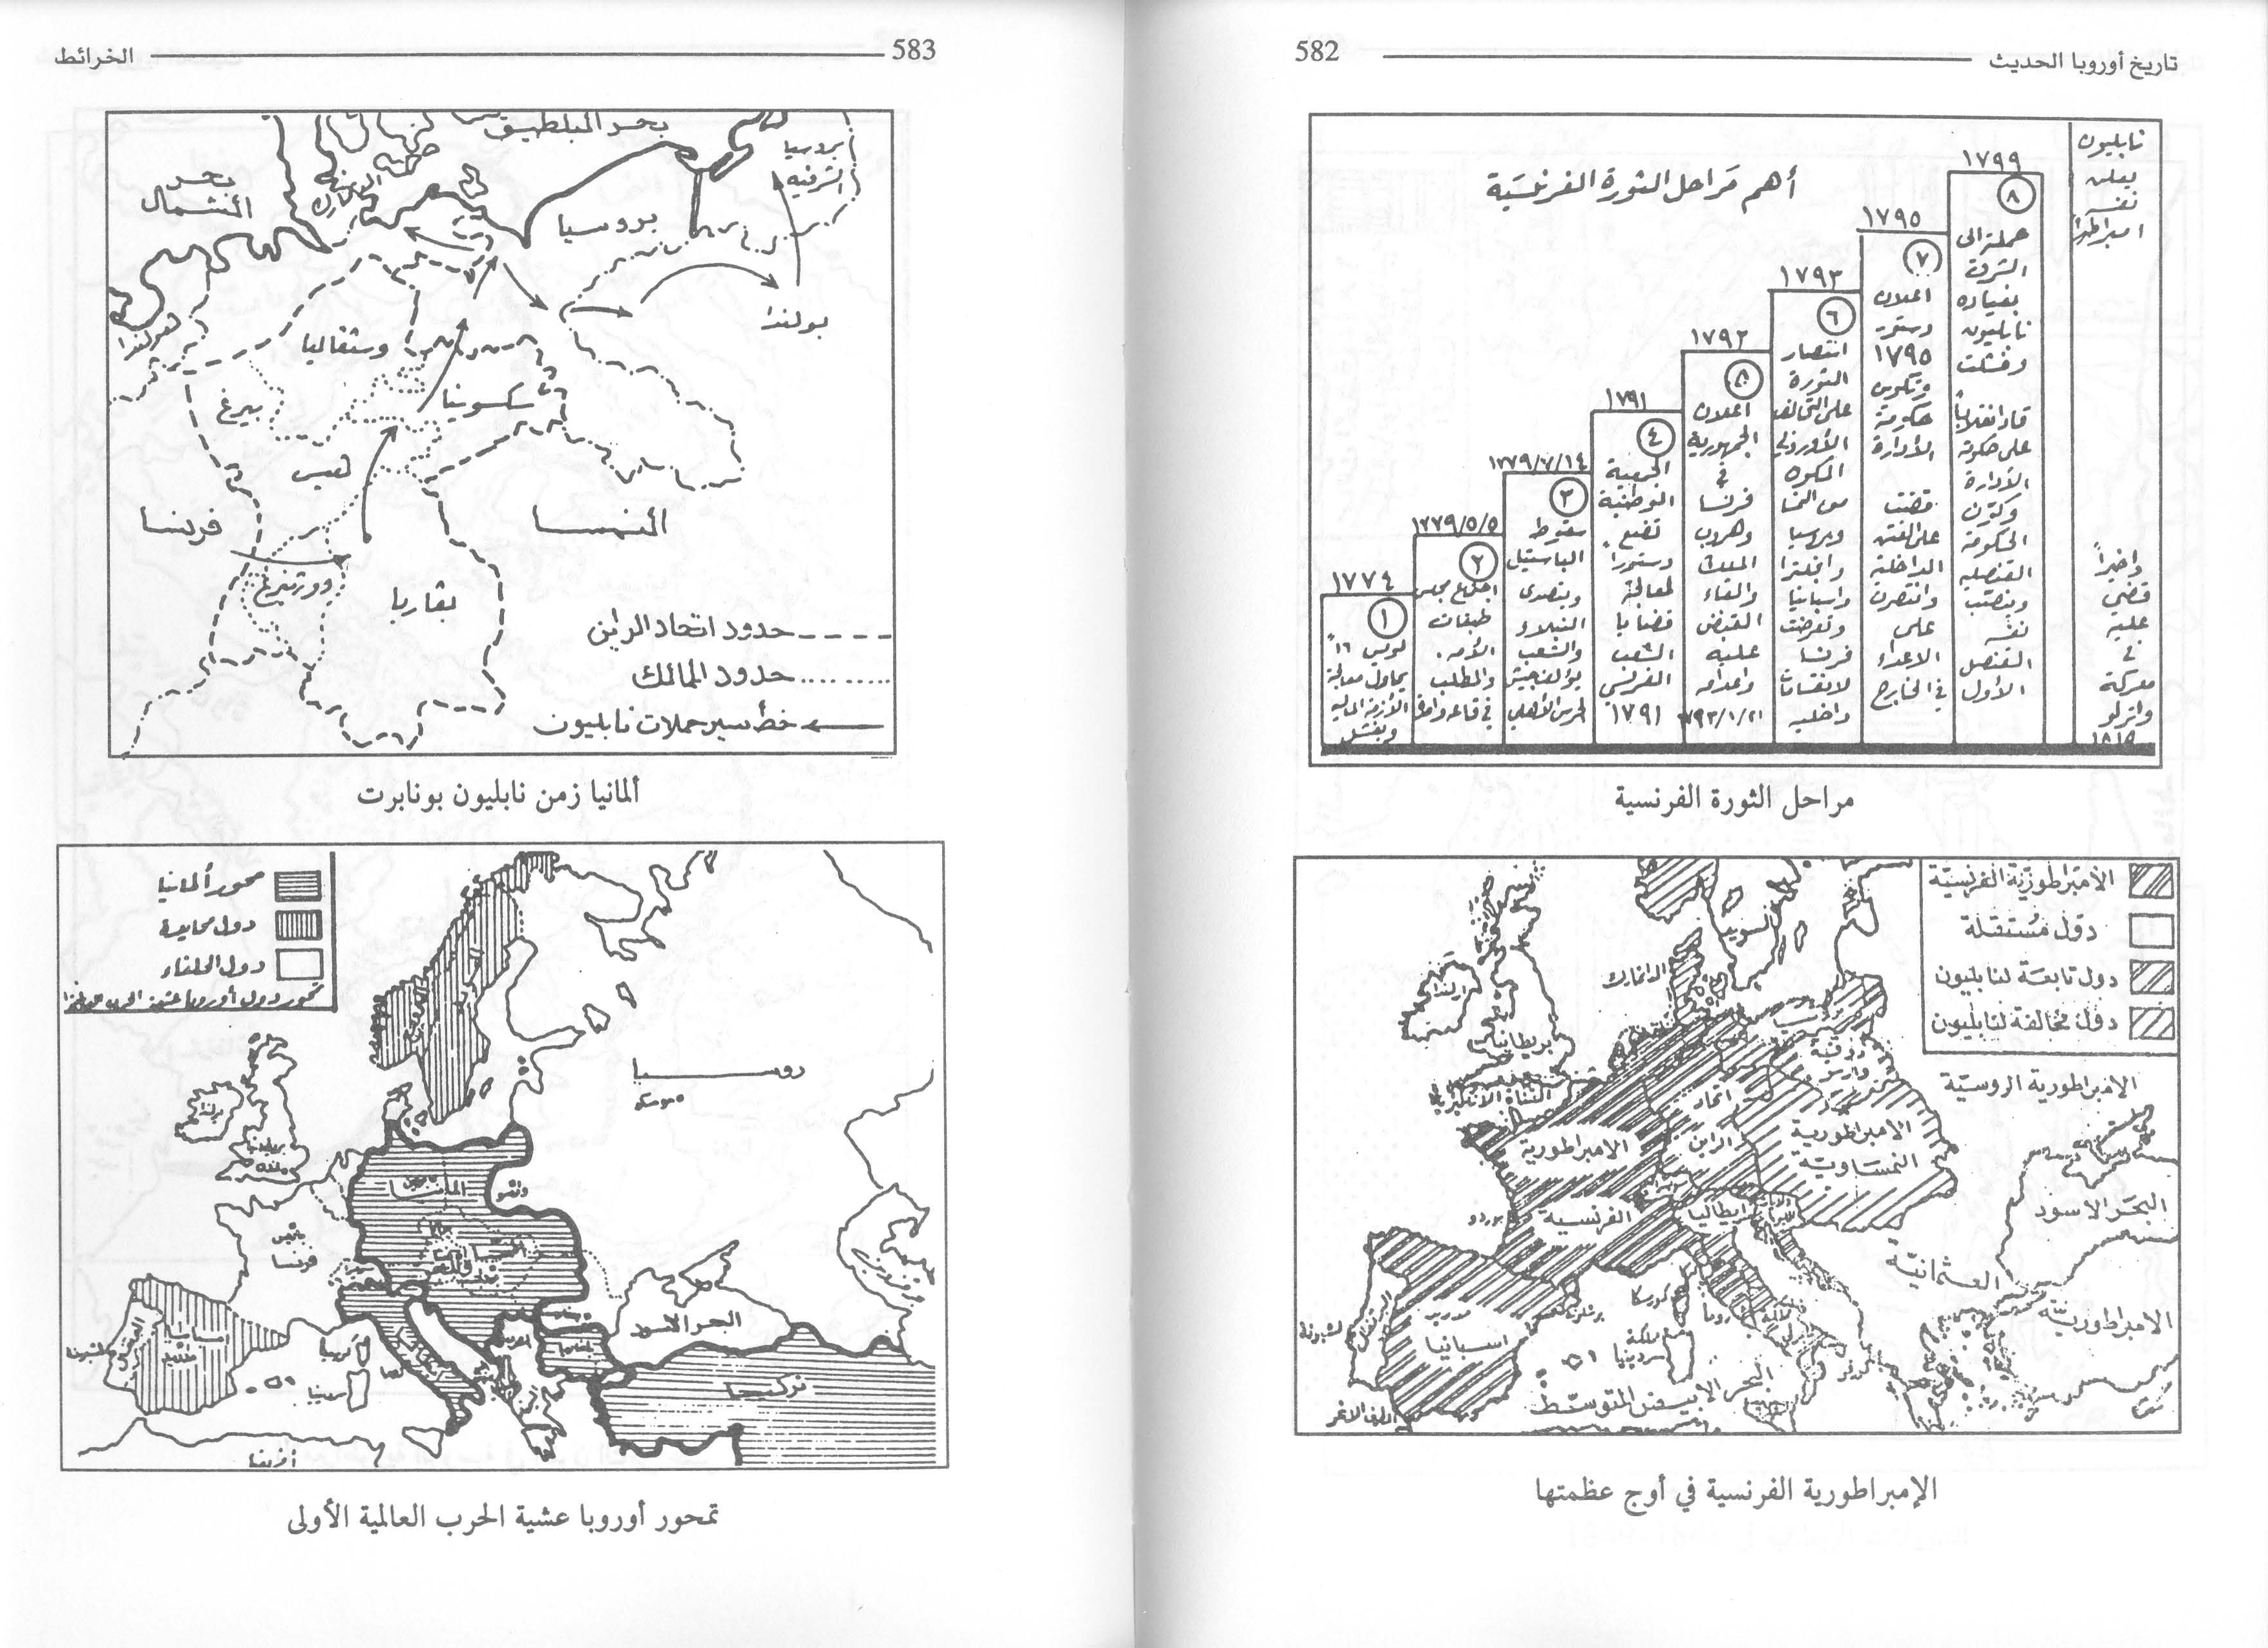 تاريخ أوروبا الحديث
582
أهم مراحل الثورة الفرنسية
١٧٧٤
١
لويس ١٦
يحاول معالجة
الأزمة المالية
ويفشل
١٧٧٩/٥/٥
٢
اجتماع مجلس
طبقات
الأمة.
والمطلب
في قاعة واحدة
١٧٧٩/٧/١٤
٣
سقوط
الباستيل
ويتصدى
النبلاء
والشعب
يؤلف جيش
الحرس الأهلي
١٧٩١
٤
الجمعية
الوطنية
تضع
دستوراً
لمعالجة
قضايا
الشعب
الفرنسي
١٧٩١
١٧٩٢
٥
اعلان
الجمهورية
في
فرنسا
وهروب
الملك
والقاء
القبض
عليه
واعدامه
١٧٩٣/١/٢١
١٧٩٣
٦
انتصار
الثورة
على التحالف
الأوروبي
المكون
من النمسا
وبروسيا
وانجلترا
واسبانيا
وتعرضت
فرنسا
لانقسامات
داخلية
١٧٩٥
٧
اعلان
دستور
١٧٩٥
وتكوين
حكومة
الأدارة
قضت
على الفتن
الداخلية
وانتصرت
على
الاعداء
في الخارج
١٧٩٩
٨
حملته الى
الشرق
بقيادة
نابليون
وفشلت
قاد انقلاباً
على حكومة
الأدارة
وكوّن
الحكومة
القنصلية
وينصب
نفسه
القنصل
الأول
نابليون
يعلن
نفسه
امبراطوراً
واخيراً
قضي
عليه
في
معركة
واترلو
١٨١٥
مراحل الثورة الفرنسية
الأمبراطورية الفرنسية
دول مستقلة
دول تابعة لنابليون
دول مخالفة لنابليون
السويد
الدانمارك
ارلندا
بريطانيا
بروسيا
دوقية
وارسو
الامبراطورية الروسية
اتحاد
الراين
الامبراطورية
الفرنسية
الامبراطورية
النمساوية
بوردو
ايطاليا
البحر الاسود
الامبراطورية
العثمانية
كورسكا
روما
برشلونة
مدريد
اسبانيا
لشبونة
مملكة
سردينيا
البحر الابيض المتوسط
الإمبراطورية الفرنسية في أوج عظمتها
583
الخرائط
بحر البلطيق
بحر
الشمال
الدنمارك
بروسيا
الشرقية
بروسيا
بولندا
هولندا
وستفاليا
بيرغ
سكسونيا
هيس
فرنسا
النمسا
وورتنبرغ
بڤاريا
حدود اتحاد الراين
حدود الممالك
خط سير حملات نابليون
ألمانيا زمن نابليون بونابرت
محور ألمانيا
دول محايدة
دول الحلفاء
روسيا
موسكو
المانيا
باريس
فرنسا
اسبانيا
البحر الاسود
تركيا
تمحور أوروبا عشية الحرب العالمية الأولى